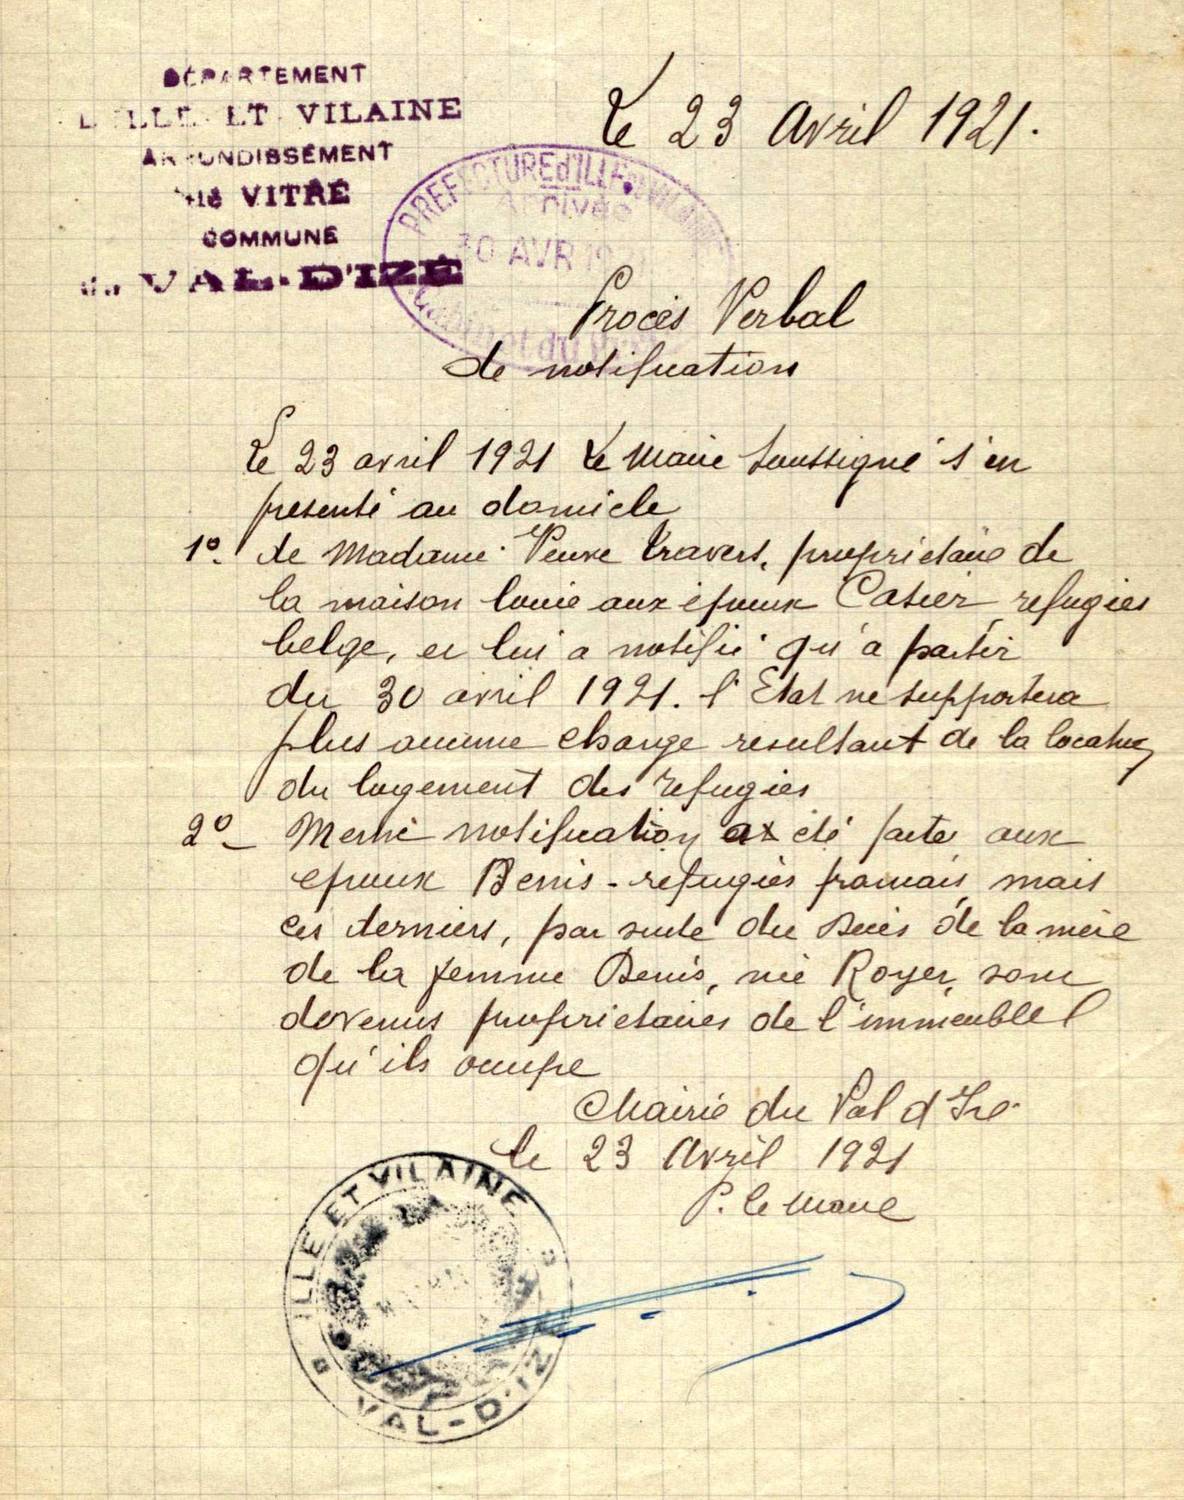 DÉPARTEMENT
D'ILLE ET VILAINE
ARRONDISSEMENT
de VITRÉ
COMMUNE
du VAL-D'IZÉ
Le 23 Avril 1921.
PREFECTURE d'ILLE et VILAINE
Arrivée
30 AVR 1921
Cabinet du
Procès Verbal
de notification
Le 23 avril 1921 Le Maire Soussigné s'en
présenté au domicile
1º. de Madame Veuve Travers, propriétaire de
la maison louée aux époux Casier, refugies
belge, et lui a notifié qu'a partir
du 30 avril 1921. l'Etat ne supportera
plus aucune charge resultant de la location
du logement des refugies
2º_ Meme notification a été faite aux
epoux Denis - refugiés francais, mais
ces derniers, par suite du Deces de la mère
de la femme Denis, née Royer, sont
devenus propriétaires de l'immeuble
qu'ils occupe
Mairie du Val d'Izé
le 23 Avril 1921
P. le Maire
ILLE ET VILAINE
VAL-D'IZÉ